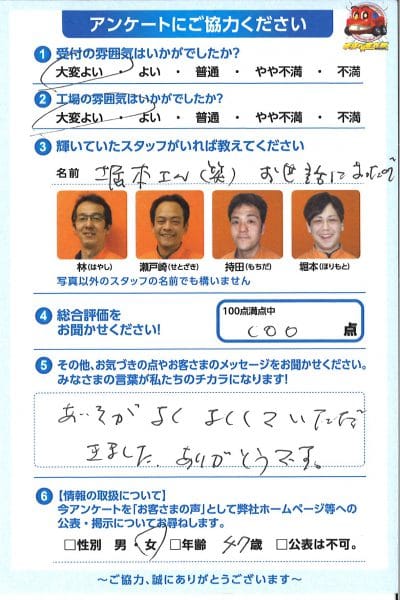 アンケートにご協力ください
1 受付の雰囲気はいかがでしたか?
大変よい ・ よい ・ 普通 ・ やや不満 ・ 不満
2 工場の雰囲気はいかがでしたか?
大変よい ・ よい ・ 普通 ・ やや不満 ・ 不満
3 輝いていたスタッフがいれば教えてください
名前 堀本さん(笑) お世話になったので
林(はやし) 瀬戸崎(せとざき) 持田(もちだ) 堀本(ほりもと)
写真以外のスタッフの名前でも構いません
4 総合評価を
お聞かせください!
100点満点中
100 点
5 その他、お気づきの点やお客さまのメッセージをお聞かせください。
みなさまの言葉が私たちのチカラになります!
あいそがよく よくしていただ
きました。ありがとうです。
6 【情報の取扱について】
今アンケートを「お客さまの声」として弊社ホームページ等への
公表・掲示についてお尋ねします。
□性別 男・女 □年齢 47歳 □公表は不可。
〜ご協力、誠にありがとうございます〜